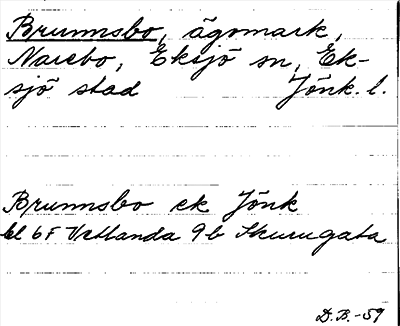 Brunnsbo, ägomark,
Narebo, Eksjö sn, Ek-
sjö stad Jönk. l.
Brunnsbo ek Jönk
bl 6F Vetlanda 9b Skurugata
D.B.-59